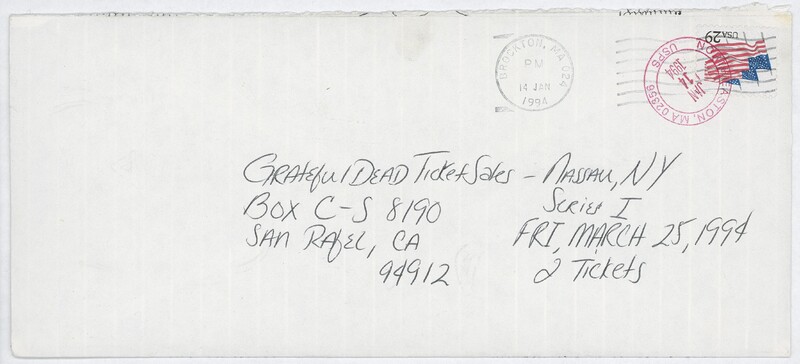 BROCKTON, MA 024
PM
14 JAN
1994
USA 29
NORTH EASTON, MA 02356
JAN
14
1994
USPS
Grateful Dead Ticket Sales – Nassau, NY
Box C-S 8190 Series I
San Rafel, CA FRI, MARCH 25, 1994
94912 2 Tickets